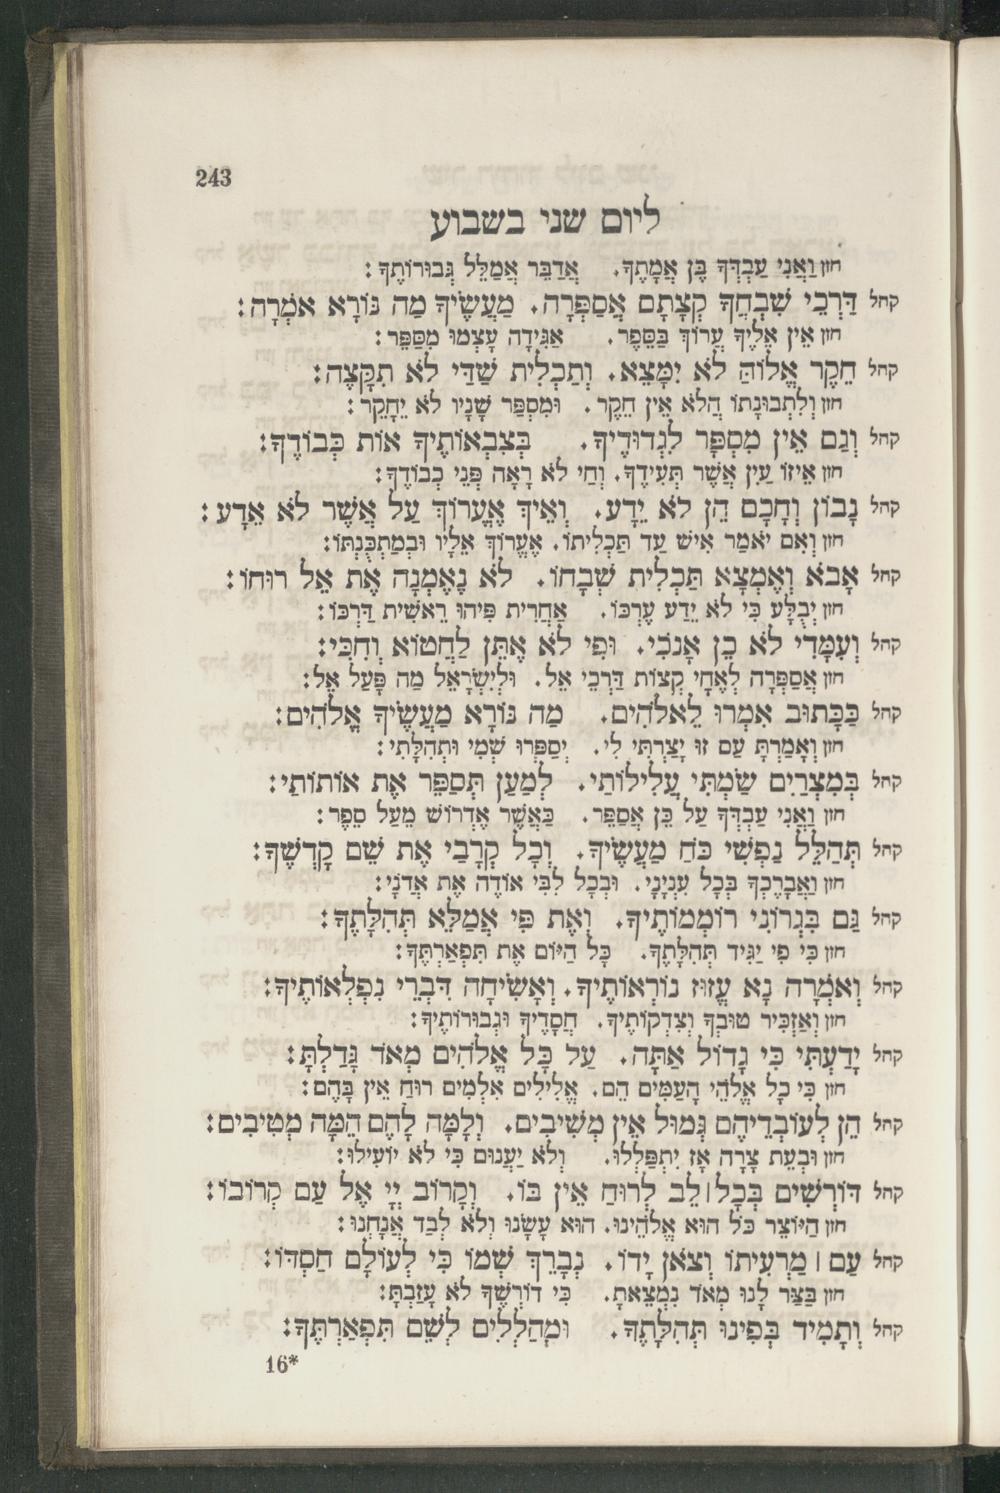 243
ליום שני בשבוע
חזן וַאֲנִי עַבְדְּךָ בֶּן אֲמָתֶךָ. אֲדַבֵּר אֲמַלֵּל גְּבוּרוֹתֶךָ:
קהל דַּרְכֵי שִׁבְחֲךָ קְצָתָם אֲסַפְּרָה. מַעֲשֶׂיךָ מַה נּוֹרָא אֹמְרָה:
חזן אֵין אֵלֶיךָ עֲרוֹךְ בַּסֵּפֶר. אַגִּידָה עָצְמוּ מִסַּפֵּר:
קהל חֵקֶר אֱלוֹהַּ לֹא יִמָּצֵא. וְתַכְלִית שַׁדַּי לֹא תִקָּצֶה:
חזן וְלִתְבוּנָתוֹ הֲלֹא אֵין חֵקֶר. וּמִסְפַּר שָׁנָיו לֹא יֵחָקֵר:
קהל וְגַם אֵין מִסְפָּר לִגְדוּדֶיךָ. בְּצִבְאוֹתֶיךָ אוֹת כְּבוֹדֶךָ:
חזן אֵיזוֹ עַיִן אֲשֶׁר תְּעִידֶךָ. וְחַי לֹא רָאָה פְּנֵי כְבוֹדֶךָ:
קהל נָבוֹן וְחָכָם הֵן לֹא יֵדָע. וְאֵיךְ אֶעֱרוֹךְ עַל אֲשֶׁר לֹא אֵדָע:
חזן וְאִם יֹאמַר אִישׁ עַד תַּכְלִיתוֹ. אֶעֱרוֹךְ אֵלָיו וּבְמַתְכֻּנְתּוֹ:
קהל אָבֹא וְאֶמְצָא תַּכְלִית שְׁבָחוֹ. לֹא נֶאֶמְנָה אֶת אֵל רוּחוֹ:
חזן יְבֻלָּע כִּי לֹא יֵדַע עֶרְכּוֹ. אַחֲרִית פִּיהוּ רֵאשִׁית דַּרְכּוֹ:
קהל וְעִמָּדִי לֹא כֵן אָנֹכִי. וּפִי לֹא אֶתֵּן לַחֲטוֹא וְחִכִּי:
חזן אֲסַפְּרָה לְאֶחָי קְצוֹת דַּרְכֵי אֵל. וּלְיִשְׂרָאֵל מַה פָּעַל אֵל:
קהל כַּכָּתוּב אִמְרוּ לֵאלֹהִים. מַה נּוֹרָא מַעֲשֶׂיךָ אֱלֹהִים:
חזן וְאָמַרְתָּ עַם זוּ יָצַרְתִּי לִי. יְסַפְּרוּ שְׁמִי וּתְהִלָּתִי:
קהל בְּמִצְרַיִם שַׂמְתִּי עֲלִילוֹתַי. לְמַעַן תְּסַפֵּר אֶת אוֹתוֹתַי:
חזן וַאֲנִי עַבְדְּךָ עַל כֵּן אֲסַפֵּר. כַּאֲשֶׁר אֶדְרוֹשׁ מֵעַל סֵפֶר:
קהל תְּהַלֵּל נַפְשִׁי כֹּחַ מַעֲשֶׂיךָ. וְכָל קְרָבַי אֶת שֵׁם קָדְשֶׁךָ:
חזן וַאֲבָרֶכְךָ בְּכָל עִנְיָנָי. וּבְכָל לִבִּי אוֹדֶה אֶת אֲדֹנָי:
קהל גַּם בִּגְרוֹנִי רוֹמְמוֹתֶיךָ. וְאֶת פִּי אֲמַלֵּא תְּהִלָּתֶךָ:
חזן כִּי פִי יַגִּיד תְּהִלָּתֶךָ. כָּל הַיּוֹם אֶת תִּפְאַרְתֶּךָ:
קהל וְאֹמְרָה נָא עֱזוּז נוֹרְאוֹתֶיךָ. וְאָשִׂיחָה דִּבְרֵי נִפְלְאוֹתֶיךָ:
חזן וְאַזְכִּיר טוּבְךָ וְצִדְקוֹתֶיךָ. חֲסָדֶיךָ וּגְבוּרוֹתֶיךָ:
קהל יָדַעְתִּי כִּי גָדוֹל אַתָּה. עַל כָּל אֱלֹהִים מְאֹד גָּדַלְתָּ:
חזן כִּי כָל אֱלֹהֵי הָעַמִּים הֵם. אֱלִילִים אִלְּמִים רוּחַ אֵין בָּהֶם:
קהל הֵן לְעוֹבְדֵיהֶם גְּמוּל אֵין מְשִׁיבִים. וְלָמָּה לָהֶם הֵמָּה מְטִיבִים:
חזן וּבְעֵת צָרָה אָז יִתְפַּלְלוּ. וְלֹא יַעֲנוּם כִּי לֹא יוֹעִילוּ:
קהל דּוֹרְשִׁים בְּכָל ׀ לֵב לְרוּחַ אֵין בּוֹ. וְקָרוֹב יְיָ אֶל עַם קְרוֹבוֹ:
חזן הַיּוֹצֵר כֹּל הוּא אֱלֹהֵינוּ. הוּא עָשָׂנוּ וְלֹא לְבַד אֲנָחְנוּ:
קהל עַם ׀ מַרְעִיתוֹ וְצֹאן יָדוֹ. נְבָרֵךְ שְׁמוֹ כִּי לְעוֹלָם חַסְדּוֹ:
חזן בַּצַּר לָנוּ מְאֹד נִמְצֵאתָ. כִּי דוֹרְשֶׁךָ לֹא עָזַבְתָּ:
קהל וְתָמִיד בְּפִינוּ תְּהִלָּתֶךָ. וּמְהַלְלִים לְשֵׁם תִּפְאַרְתֶּךָ:
16*